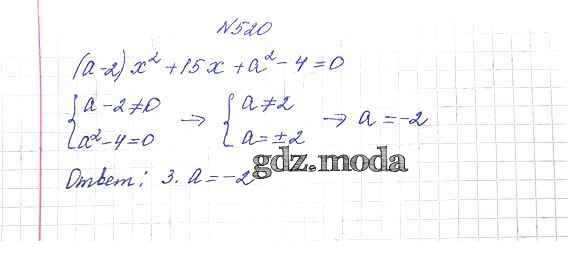 N520
(a-2)x² + 15x + a² - 4 = 0
{a - 2 ≠ 0 → {a ≠ 2 → a = -2
a² - 4 = 0 a = ±2
gdz.moda
Ответ: 3. a = -2